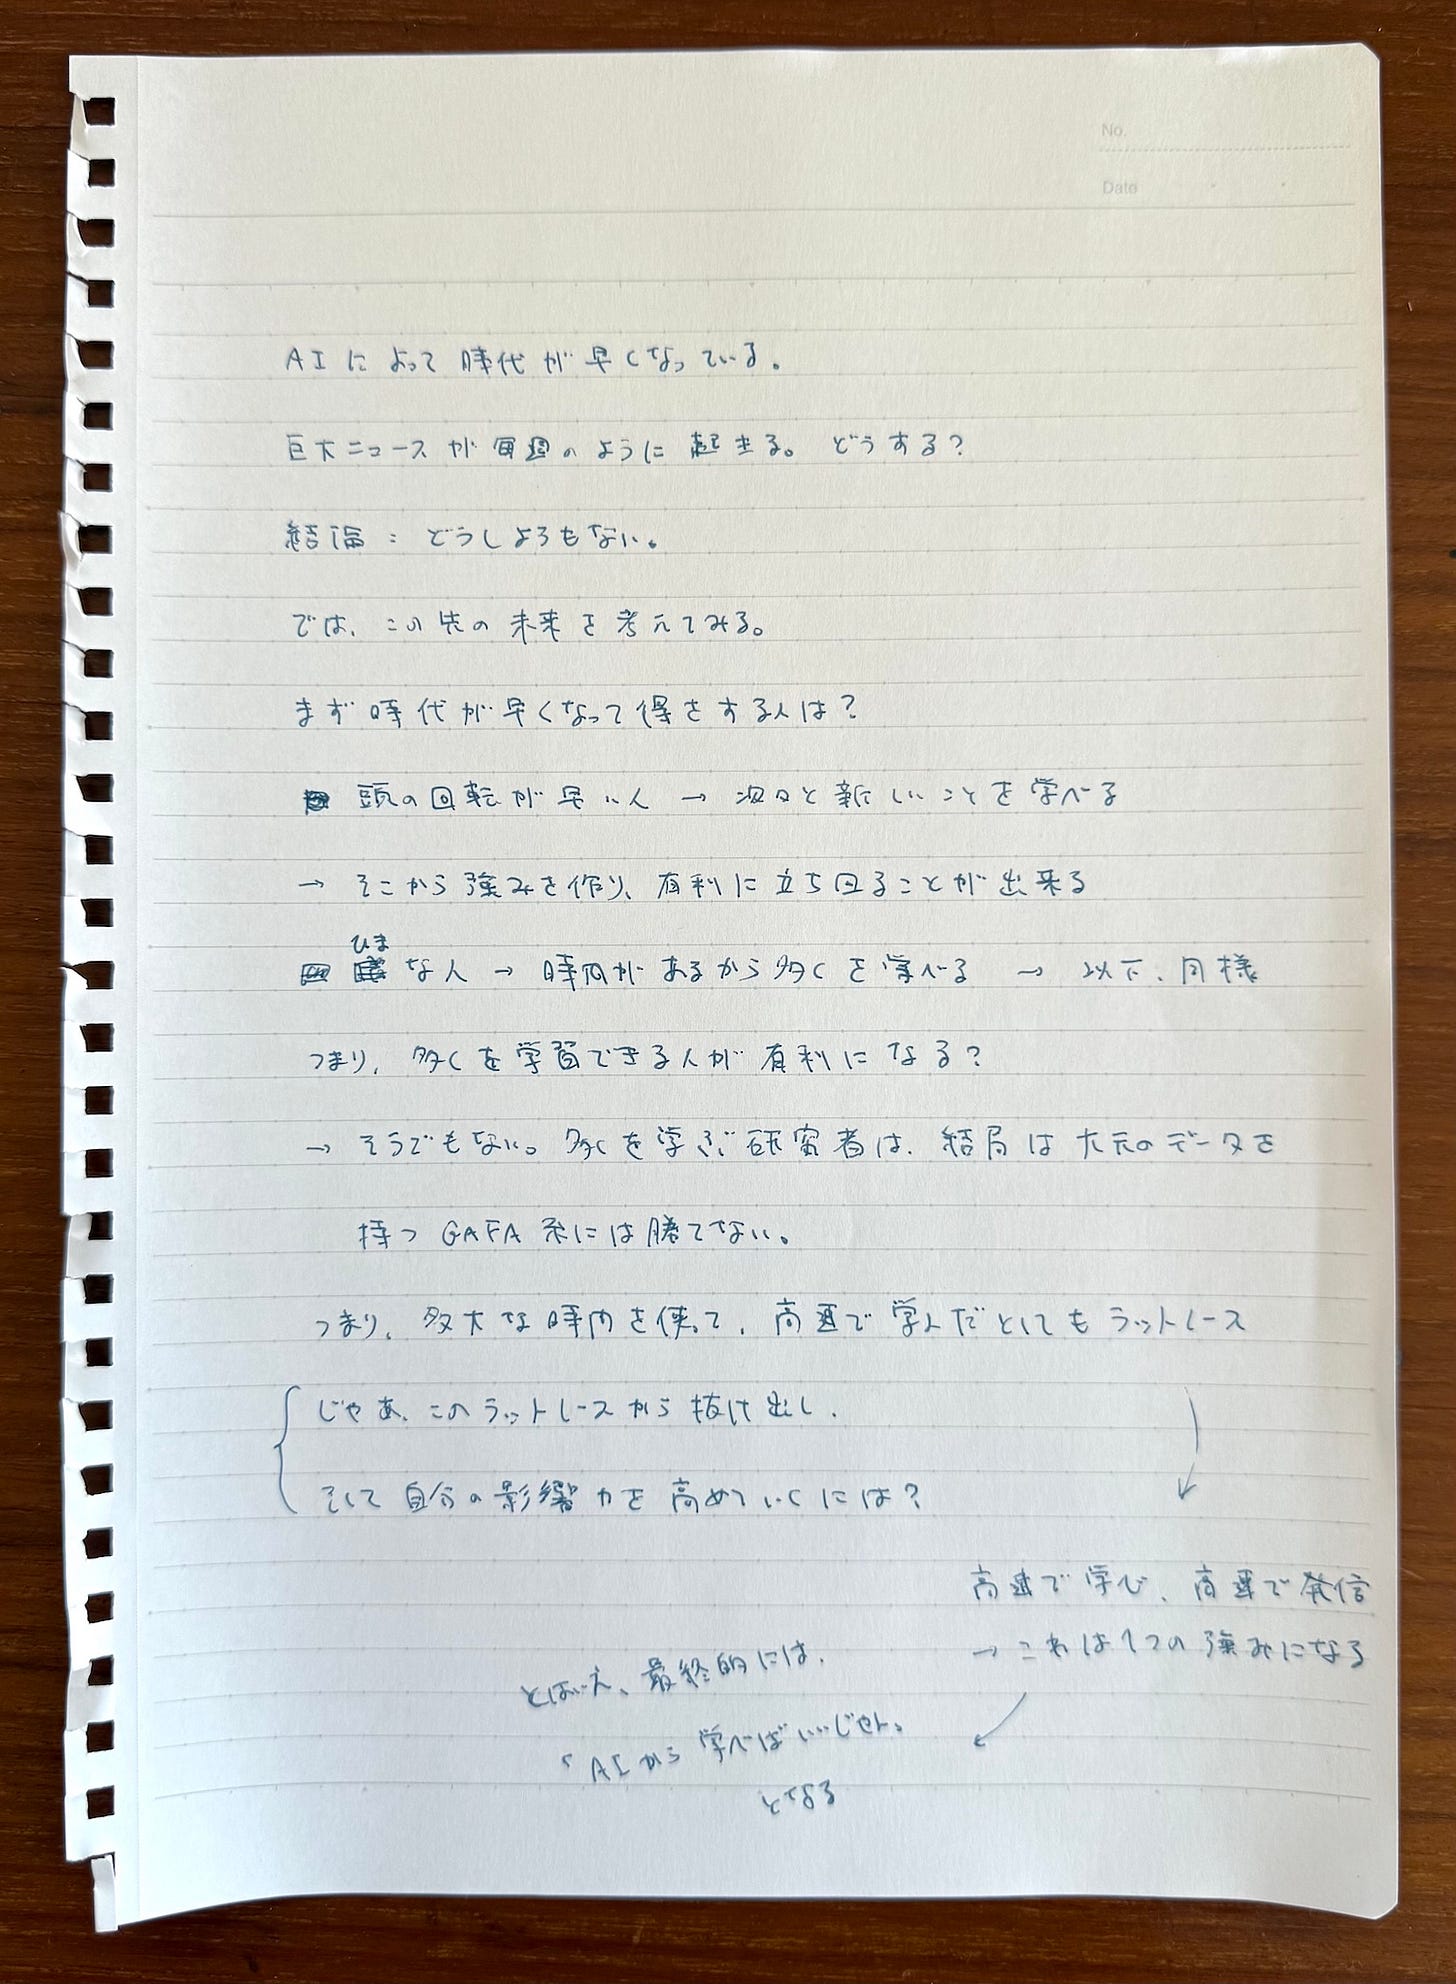 No.
Date
AIによって時代が早くなっている。
巨大ニュースが毎週のように起きる。どうする？
結論：どうしようもない。
では、この先の未来を考えてみる。
まず時代が早くなって得をする人は？
頭の回転が早い人 → 次々と新しいことを学べる
→ そこから強みを作り、有利に立ち回ることが出来る
ひま
な人 → 時間があるから多くを学べる → 以下、同様
つまり、多くを学習できる人が有利になる？
→ そうでもない。多くを学ぶ研究者は、結局は大元のデータを
持つGAFA系には勝てない。
つまり、多大な時間を使って、高速で学んだとしてもラットレース
じゃあ、このラットレースから抜け出し、
そして自分の影響力を高めていくには？
高速で学び、高速で発信
→ これは1つの強みになる
とはいえ、最終的には、
「AIから学べばいいじゃん。
となる